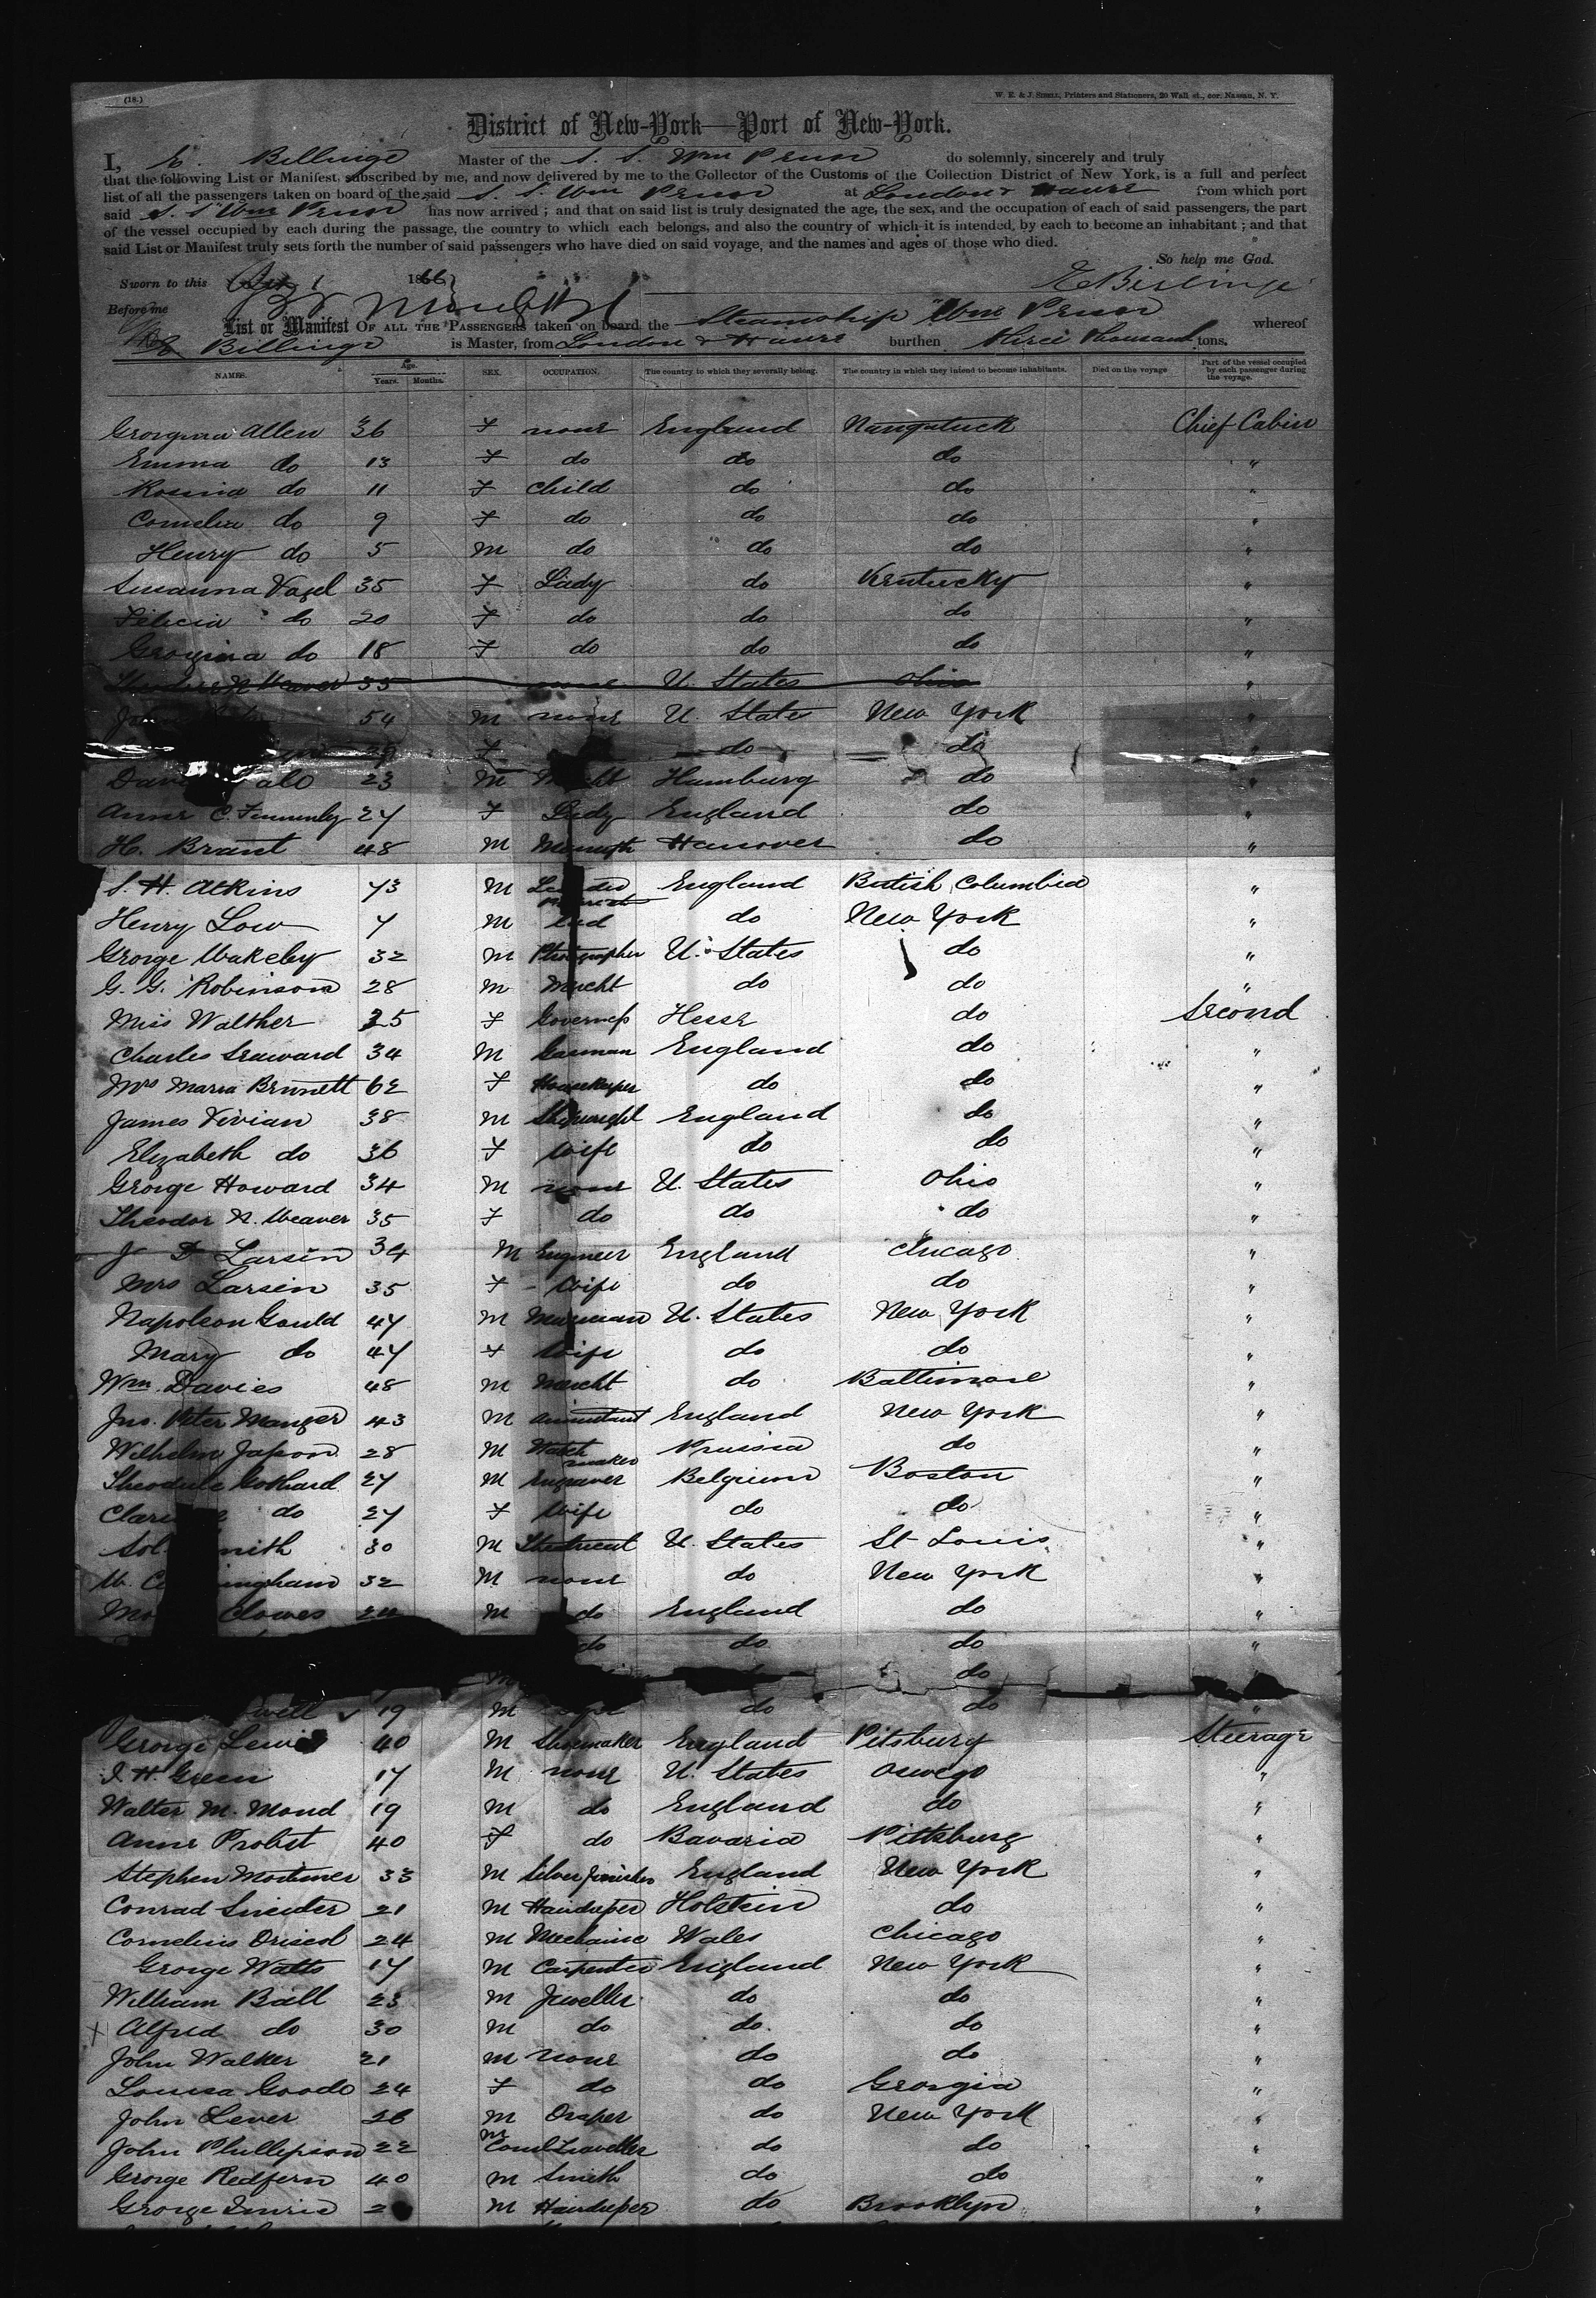 (18.)
W. E. & J. Sibell, Printers and Stationers, 20 Wall st., cor. Nassau, N. Y.
District of New-York—Port of New-York.
I, E. Billinge Master of the S. S. Wm Penn do solemnly, sincerely and truly
that the following List or Manifest, subscribed by me, and now delivered by me to the Collector of the Customs of the Collection District of New York, is a full and perfect
list of all the passengers taken on board of the said S. S. Wm Penn at London & Havre from which port
said S. S "Wm Penn has now arrived; and that on said list is truly designated the age, the sex, and the occupation of each of said passengers, the part
of the vessel occupied by each during the passage, the country to which each belongs, and also the country of which it is intended by each to become an inhabitant; and that
said List or Manifest truly sets forth the number of said passengers who have died on said voyage, and the names and ages of those who died.
So help me God.
Sworn to this 1 1866 E Billinge
Before me
List or Manifest OF ALL THE PASSENGERS taken on board the Steamship "Wm Penn whereof
E Billinge is Master, from London & Havre burthen three thousand tons.
NAMES. Age. Years. Months. SEX. OCCUPATION. The country to which they severally belong. The country in which they intend to become inhabitants. Died on the voyage Part of the vessel occupied by each passenger during the voyage.
Georgina Allen 36 F none England Naugatuck Chief Cabin
Emma do 13 F do do do "
Rosina do 11 F child do do "
Cornelia do 9 F do do do "
Henry do 5 m do do do "
Susanna Vogel 35 F Lady do Kentucky "
Felicia do 20 F do do do "
Georgina do 18 F do do do "
Theodore N Weaver 35 none U. States Ohio "
54 m none U. States New York "
29 F do do "
23 m Mercht Hamburg do "
Anne C. 27 F Lady England do "
H. Brant 48 m Hanover do "
S. H. Atkins 73 m England British Columbia "
Henry Low 7 m Lad do New York "
George Wakeley 32 m Photographer U. States do "
G. G. Robinson 28 m Mercht do do "
Miss Walther 25 F Governess Hesse do Second
Charles Seaward 34 m England do "
Mrs Maria Brunett 62 F Housekeeper do do "
James Vivian 38 m Shipwright England do "
Elizabeth do 36 F Wife do do "
George Howard 34 m none U. States Ohio "
Theodor N. Weaver 35 F do do do "
J D Larsen 34 M Engineer England Chicago "
Mrs Larsen 35 F Wife do do "
Napoleon Gould 47 m Musician U. States New York "
Mary do 47 F Wife do do "
Wm Davies 48 m Mercht do Baltimore "
Jno. Peter Manger 43 m Accountant England New York "
Wilhelm 28 M Watch maker Prussia do "
Theodule Gothard 27 M Engraver Belgium Boston "
do 27 F Wife do do "
Sol Smith 30 M U. States St Louis "
32 M none do New York "
Clowes M do England do "
do do do "
m do
19 m do do "
George Lewis 40 M Shoemaker England Pitsburg Steerage
J. H. Green 17 M none U. States Oswego "
Walter M. Mond 19 m do England do "
Anne Probst 40 F do Bavaria Pittsburg "
Stephen Mortimer 33 M Silver finisher England New York "
Conrad Sneider 21 M Holstein do "
Cornelius Driscol 24 M Mechanic Wales Chicago "
George Watts 17 M Carpenter England New York "
William Ball 23 m Jeweller do do "
x Alfred do 30 m do do do "
John Walker 21 m none do do "
Louisa Goode 24 F do do Georgia "
John Lever 26 m Draper do New York "
John Phillipson 22 m Coml Traveller do do "
George Redfern 40 m Smith do do "
George 2 M do Brooklyn "